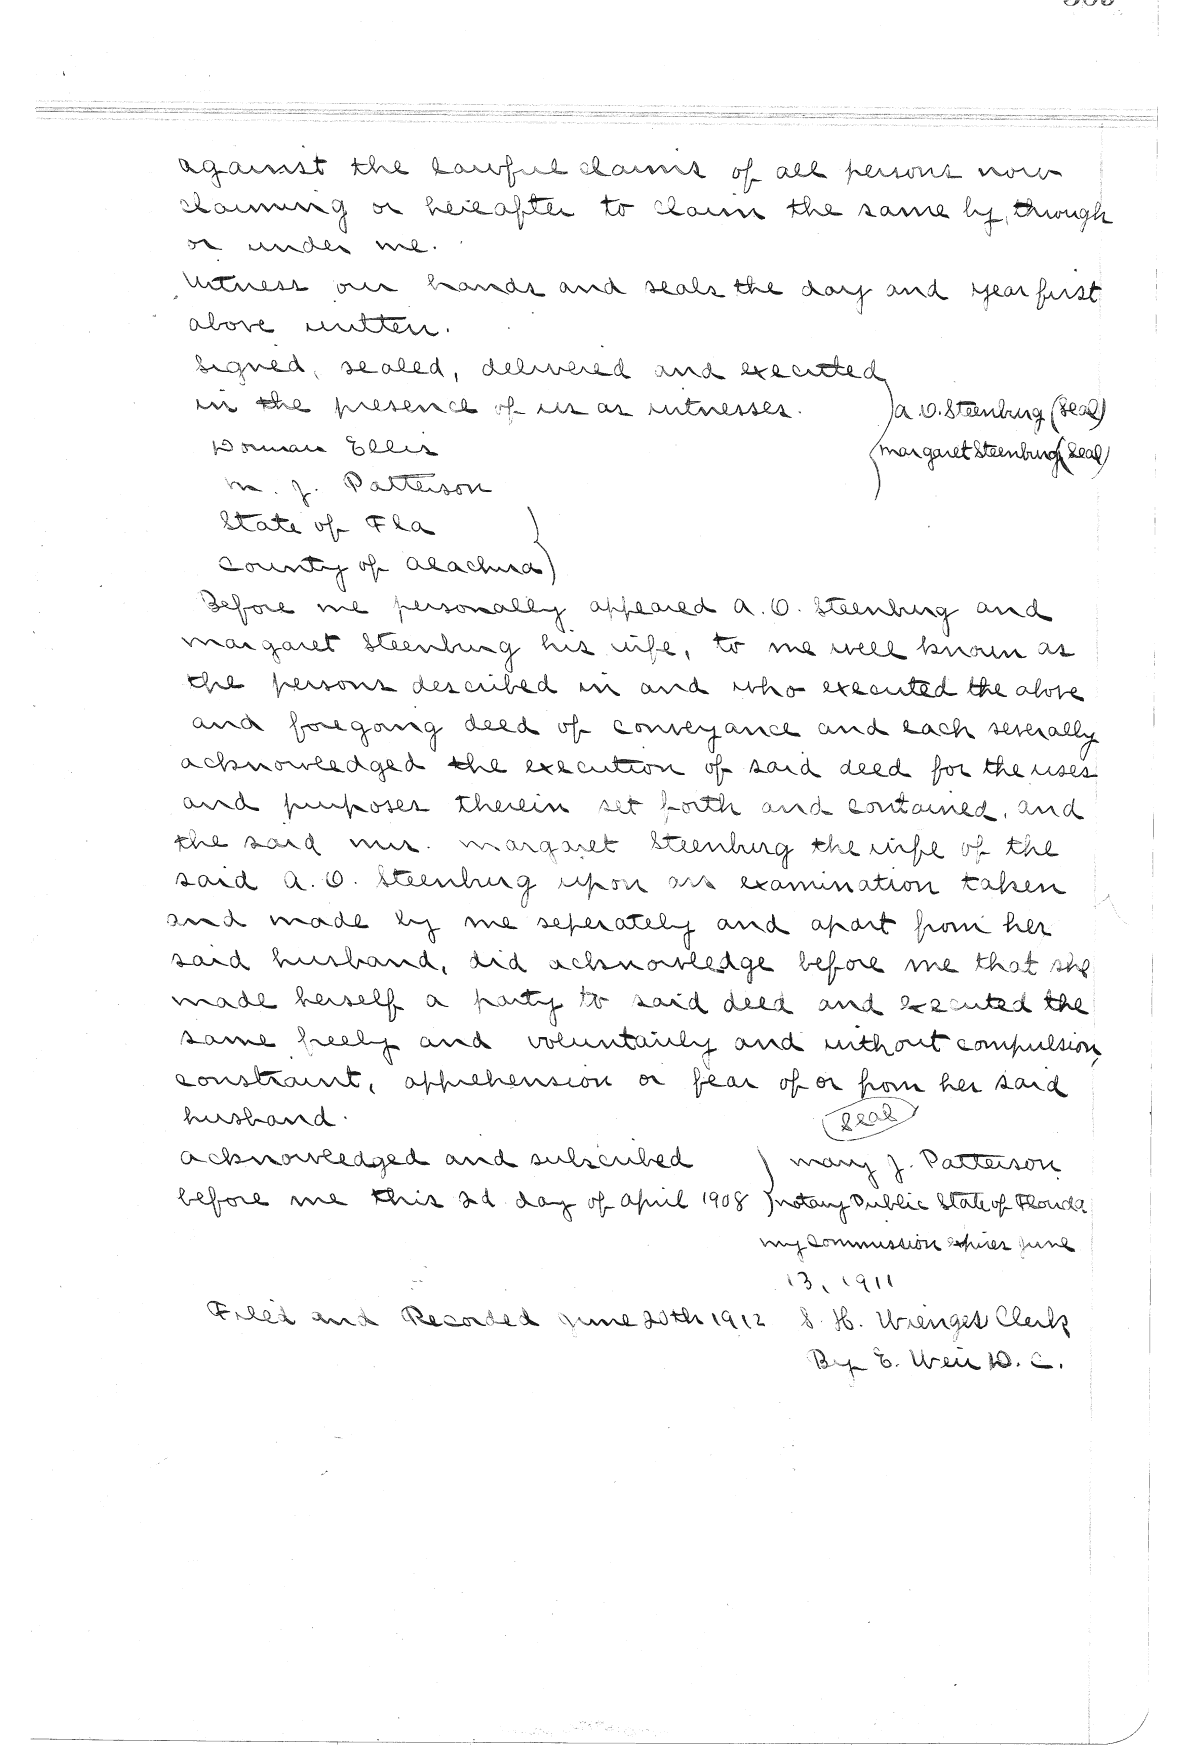 against the lawful claims of all persons now
claiming or hereafter to claim the same by, through
or under me.
Witness our hands and seals the day and year first
above written.
Signed, sealed, delivered and executed
in the presence of us as witnesses. A. O. Steenburg (Seal)
Dorman Ellis Margaret Steenburg (Seal)
M. J. Patterson
State of Fla
County of Alachua
Before me personally appeared A. O. Steenburg and
Margaret Steenburg his wife, to me well known as
the persons described in and who executed the above
and foregoing deed of conveyance and each severally
acknowledged the execution of said deed for the uses
and purposes therein set forth and contained, and
the said Mrs. Margaret Steenburg the wife of the
said A. O. Steenburg upon an examination taken
and made by me seperately and apart from her
said husband, did acknowledge before me that she
made herself a party to said deed and executed the
same freely and voluntarily and without compulsion,
constraint, apprehension or fear of or from her said
husband. Seal
Acknowledged and subscribed Mary J. Patterson
before me this 2d day of April 1908 Notary Public State of Florida
My Commission expires June
13, 1911
Filed and Recorded June 20th 1912 S. H. Wienges Clerk
By E. Weir D. C.